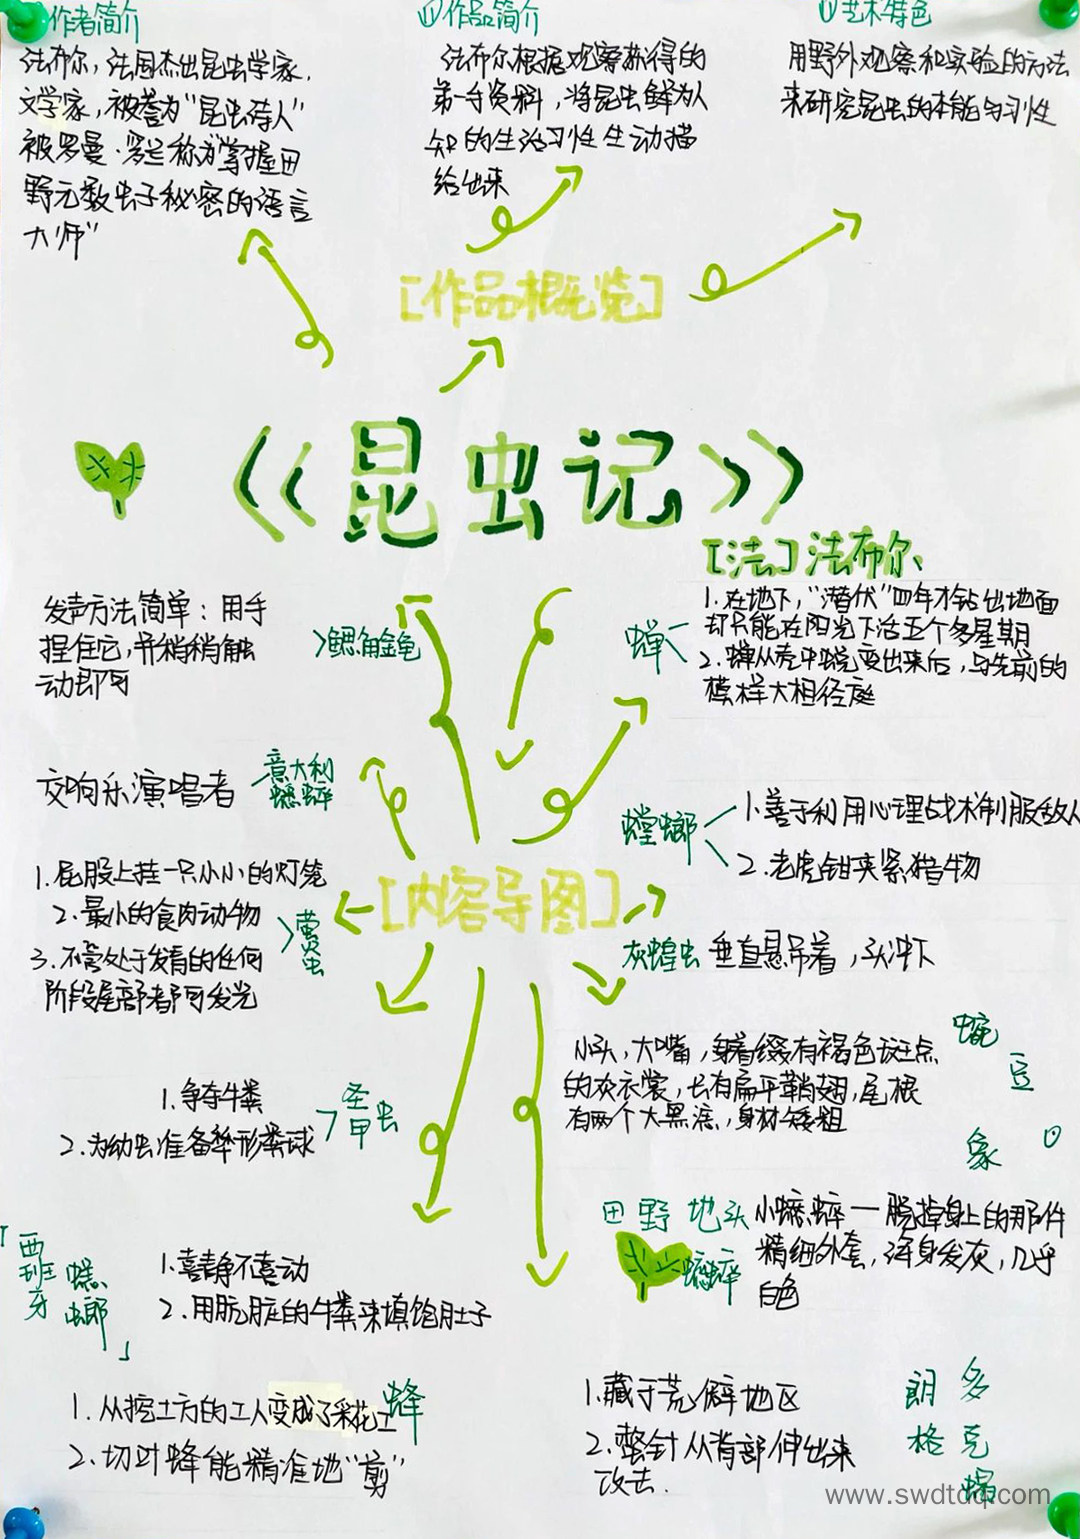 作者简介
法布尔，法国杰出昆虫学家，
文学家，被誉为“昆虫诗人”
被罗曼·罗兰称为“掌握田
野无数虫子秘密的语言
大师”
①作品简介
法布尔根据观察获得的
第一手资料，将昆虫鲜为人
知的生活习性生动描
绘出来
①艺术特色
用野外观察和实验的方法
来研究昆虫的本能与习性
[作品概览]
《昆虫记》
[法]法布尔
发声方法简单：用手
捏住它，并稍稍触
动即可
鳃角金龟
蝉
1.在地下，“潜伏”四年才钻出地面
却只能在阳光下活五个多星期
2.蝉从壳中蜕变出来后，与先前的
模样大相径庭
交响乐演唱者
意大利
蟋蟀
螳螂
1.善于利用心理战术制服敌人
2.老虎钳夹紧猎物
1.屁股上挂一只小小的灯笼
2.最小的食肉动物
3.不管处于发育的任何
阶段尾部都可发光
萤
虫
[内容导图]
灰蝗虫
垂直悬吊着，头冲下
小头，大嘴，身着缀有褐色斑点
的灰衣裳，长有扁平鞘翅，尾根
有两个大黑痣，身材矮粗
豌
豆
象
1.争夺牛粪
2.为幼虫准备梨形粪球
圣
甲虫
田野地头
蟋蟀
小蟋蟀一脱掉身上的那件
精细外套，浑身发灰，几乎
白色
「西
班
牙
螂
」
1.喜静不喜动
2.用肮脏的牛粪来填饱肚子
1.从挖土方的工人变成了采花工
2.切叶蜂能精准地“剪”
蜂
1.藏于荒僻地区
2.螫针从背部伸出来
攻击.
朗多
格克
www.swdtdq.com